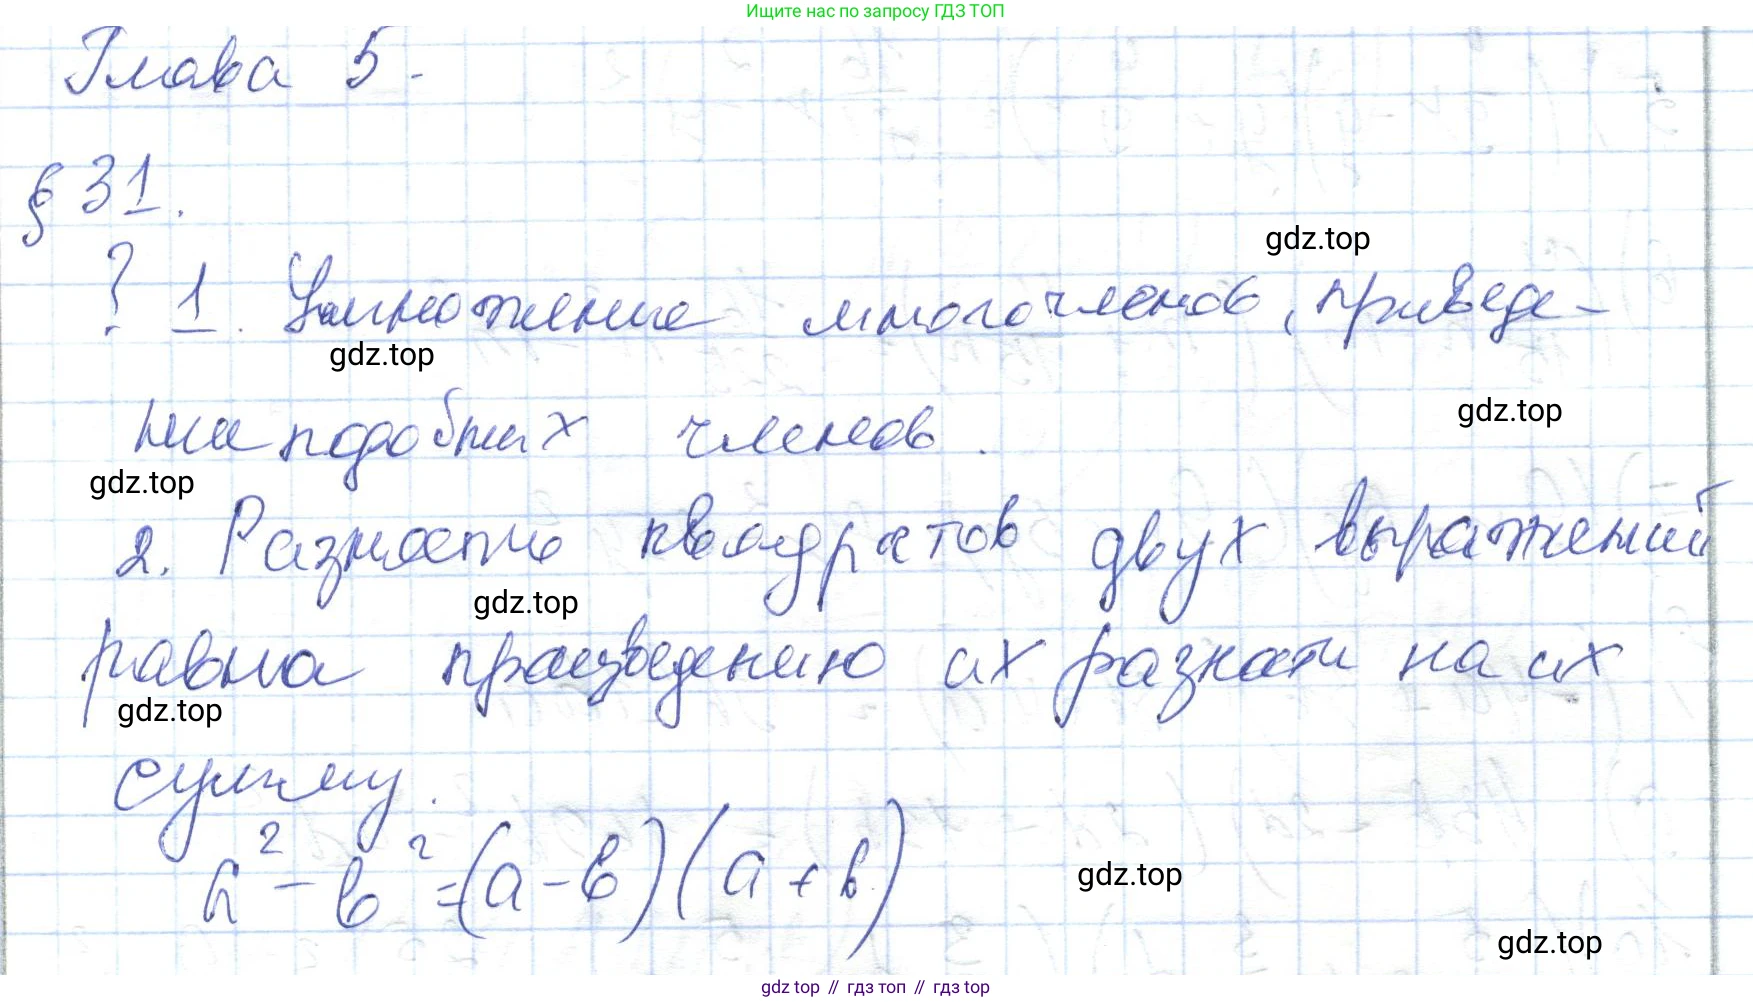 Ищите нас по запросу ГДЗ ТОП
Глава 5.
§ 31.
gdz.top
? 1. Умножение многочленов, приведе-
gdz.top
gdz.top
ние подобных членов.
gdz.top
2. Разность квадратов двух выражений
gdz.top
равна произведению их разности на их
gdz.top
сумму.
a² - b² = (a - b)(a + b)
gdz.top
gdz.top
gdz top // гдз топ // гдз top